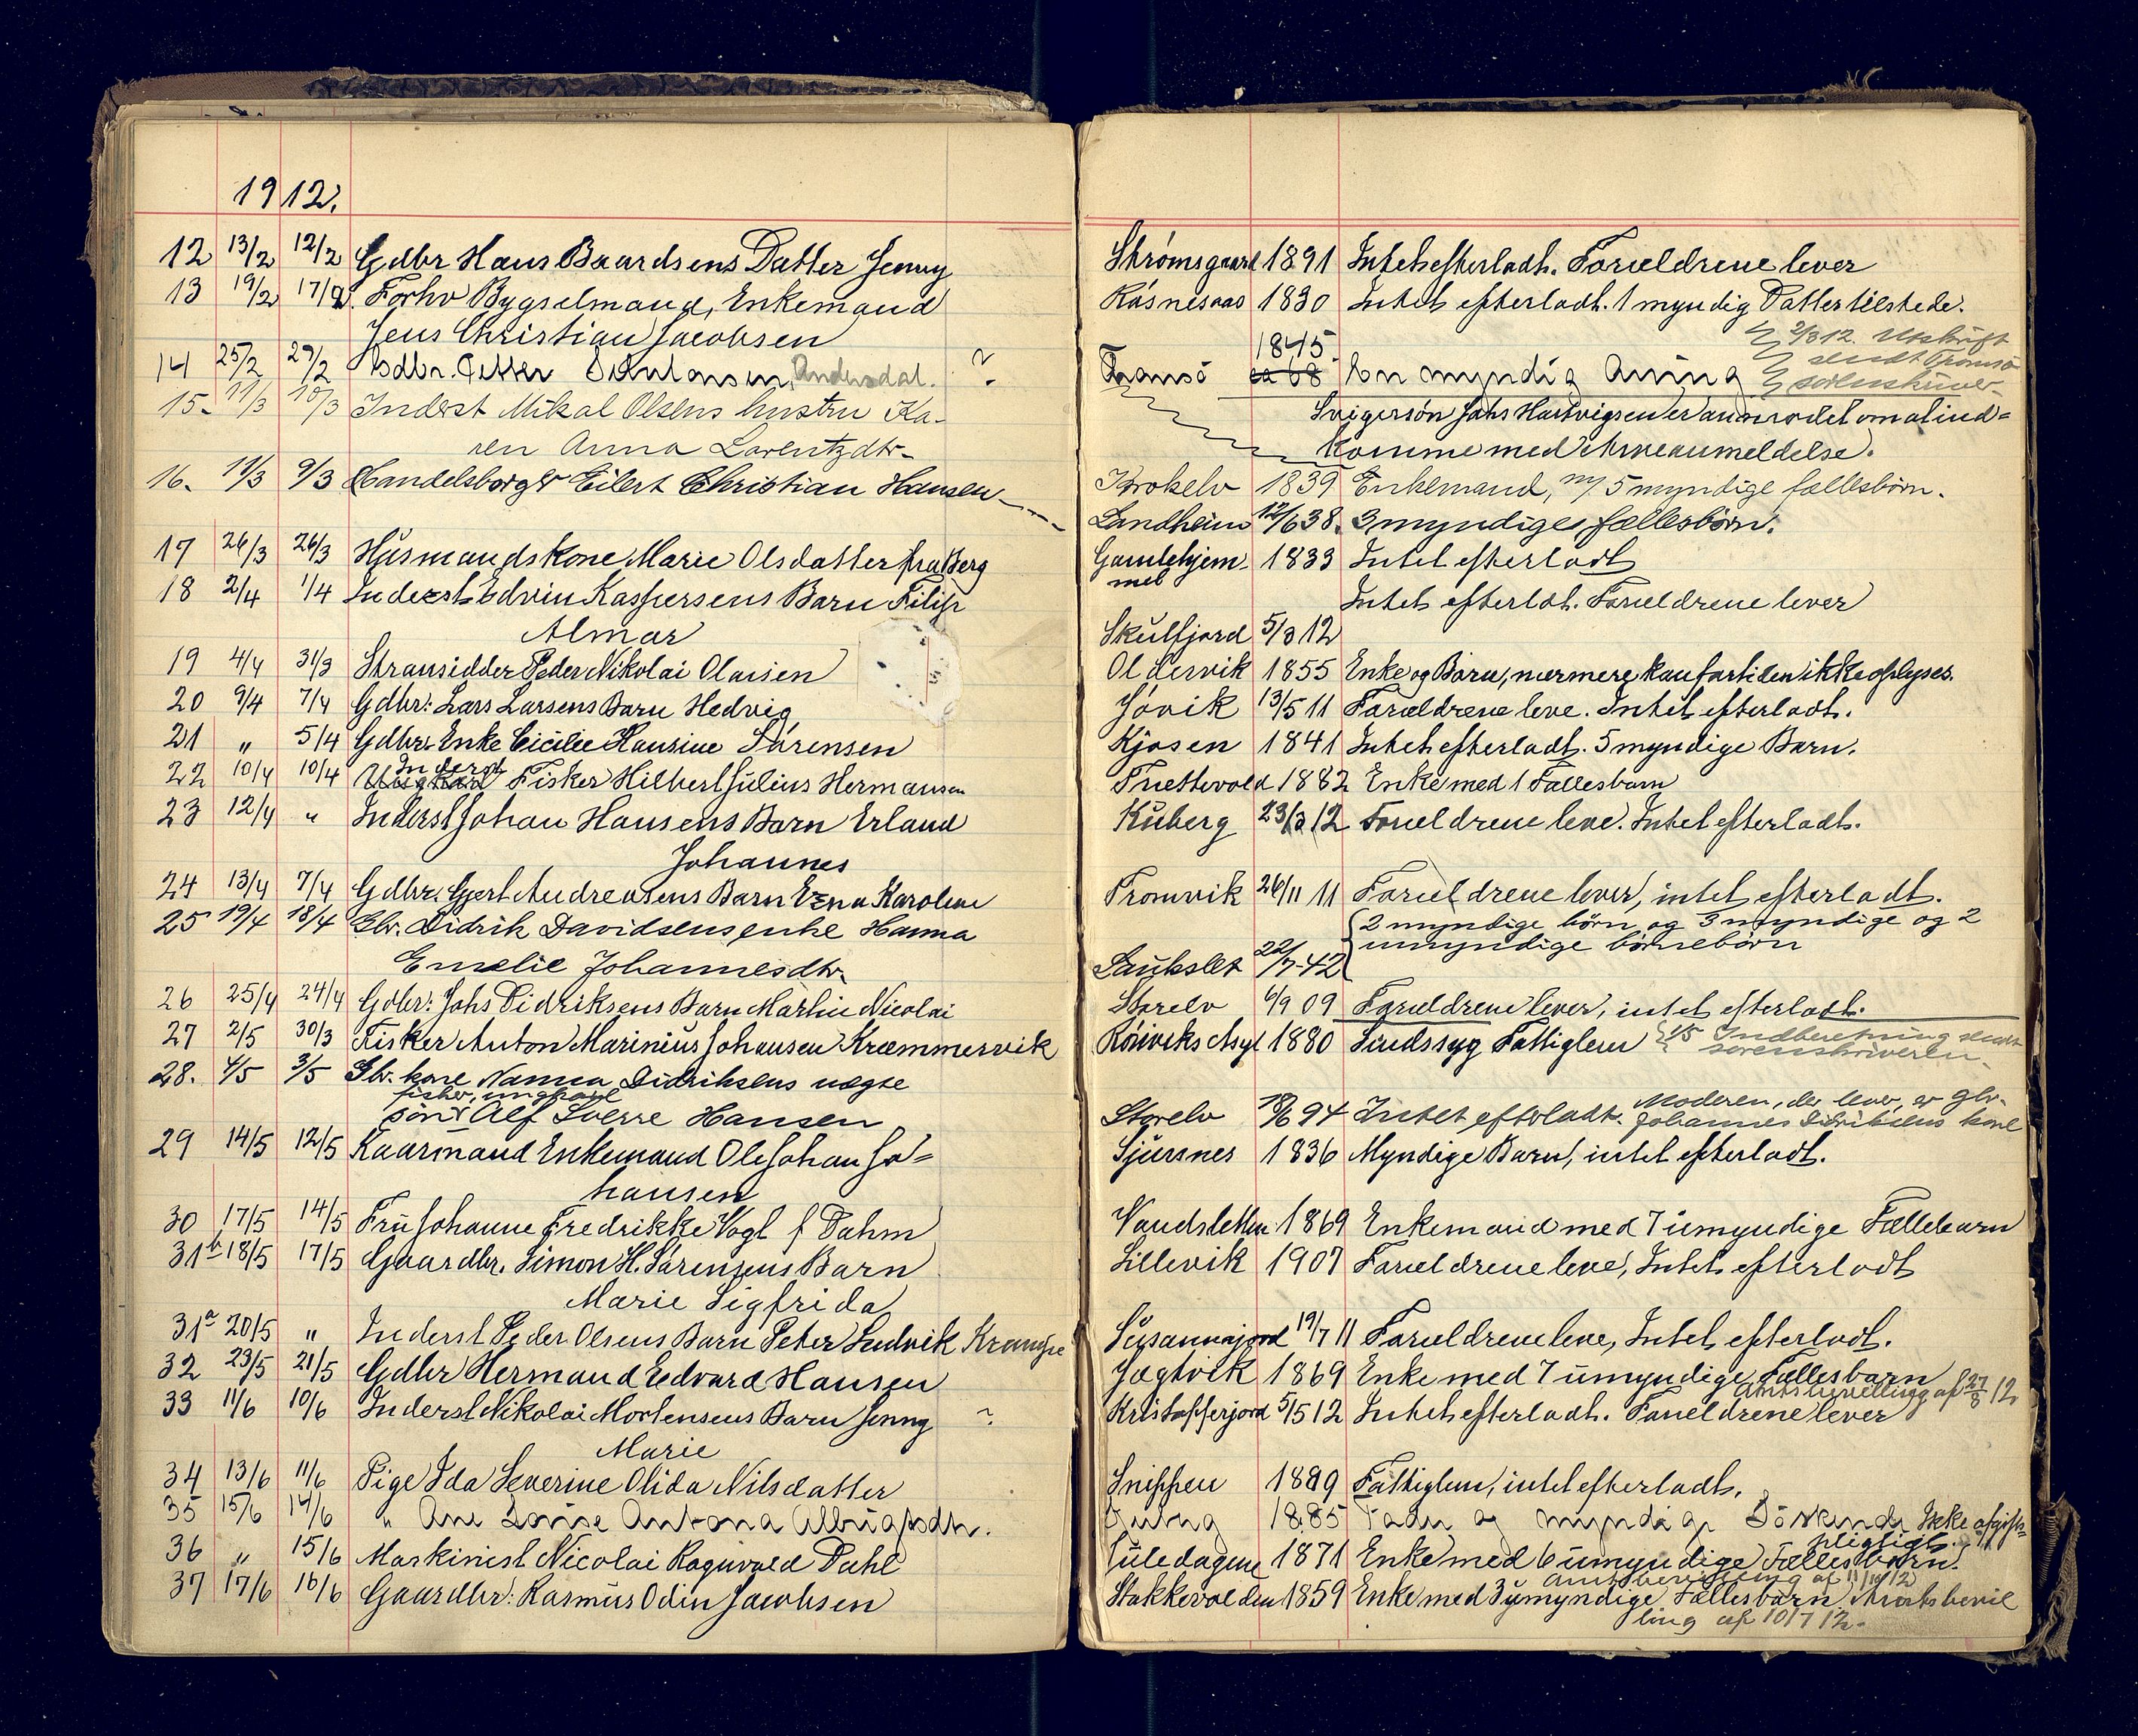 1912.
12 13/2 12/2 Gdbr Hans Baardsens Datter Jenny
13 19/2 17/2 Forhv Bygselmand, Enkemand
Jens Christian Jacobsen
14 25/2 29/2 Gdbr. Petter Antonsen, Andersdal. ?
15. 11/3 10/3 Inderst Mikal Olsens hustru Ka-
ren Anna Lorentzdtr.
16. 11/3 9/3 Handelsborger Eilert Christian Hansen
17 26/3 26/3 Husmandskone Marie Olsdatter fra Berg
18 2/4 1/4 Inderst Edvin Kaspersens Barn Filip
Almar
19 4/4 31/3 Stransidder Peder Nikolai Olaisen
20 9/4 7/4 Gdbr: Lars Larsens Barn Hedvig
21 „ 5/4 Gdbr. Enke Cicilie Hansine Sørensen
22 10/4 10/4 Ungkarl Inderst Fisker Hilbert Julius Hermansen
23 12/4 " Inderst Johan Hansens Barn Erland
Johannes
24 13/4 7/4 Gdbr. Gjert Andreasens Barn Erna Karoline
25 19/4 18/4 Gbr. Didrik Davidsens enke Hanna
Emelie Johannesdtr.
26 25/4 24/4 Gdbr: Johs Didriksens Barn Martin Nicolai
27 2/5 30/3 Fisker Anton Marinius Johansen Kræmmervik
28. 4/5 3/5 Gbr. kone Nanna Didriksens uægte
fisker, ungkarl
søn Alf Sverre Hansen
29 14/5 12/5 Kaarmand Enkemand Ole Johan Jo=
hansen
30 17/5 14/5 Fru Johanne Fredrikke Vogt f Dahm
31b 18/5 17/5 Gaardbr. Simon H. Sørensens Barn
Marie Sigfrida
31a 20/5 „ Inderst Peder Olsens Barn Peter Ludvik
32 23/5 21/5 Gdbr Hermand Edvard Hansen
33 11/6 10/6 Inderst Nikolai Mortensens Barn Jenny ?
Marie
34 13/6 11/6 Pige Ida Severine Olida Nilsdatter
35 15/6 14/6 " Ane Lovise Antona
36 „ 15/6 Maskinist Nicolai Ragnvald Dahl
37 17/6 16/6 Gaardbr: Rasmus Odin Jacobsen
Strømsgaard 1891 Intet efterladt. Forældrene lever
Kasnesaas 1830 Intet efterladt. 1 myndig Datter tilstede.
2/3 12. Utskrift
sendt Tromsø
sorenskriver
1845.
Tromsø ca 68 En myndig Arving
Svigersøn Johs Hartvigsen er anmodet om at ind=
komme med Arveanmeldelse.
Krokelv 1839 Enkemand, m/ 5 myndige fællesbørn.
Landheim 12/6 38. 3 myndige fællesbørn.
Gamlehjem- 1833 Intet efterladt
met
Intet efterldt. Forældrene lever
Skulfjord 5/3 12
Oldervik 1855 Enke og Børn, nærmere kan for tiden ikke oplyses.
Jøvik 13/5 11 Forældrene leve. Intet efterladt.
Kjosen 1841 Intet efterladt. 5 myndige Børn.
Tuettevold 1882 Enke med 1 Fællesbarn
Kuberg 23/3 12 Forældrene leve. Intet efterladt.
Tromvik 26/11 11 Forældrene lever, intet efterladt.
2 myndige børn og 3 myndige og 2
umyndige børnebørn
Laukslet 22/7-42
Storelv 6/9 09 Forældrene lever, intet efterladt.
Rönviks Asyl 1880 Sindssyg Fattiglem 2/5 Indberetning sendt
sorenskriveren
Storelv 18/6 94 Intet efterladt. Moderen, der lever, er gbr.
Johannes Didriksens kone
Sjursnes 1836 Myndige Barn, intet efterladt.
Vandsletten 1869 Enkemand med 7 umyndige Fællebarn
Lillevik 1907 Forældrene leve, Intet efterladt
Susannajord 19/7 11 Forældrene leve, Intet efterladt.
Jægtvik 1869 Enke med 7 umyndige Fællesbarn
Amtsbevilling af 27/8 12
Kristofferjord 5/5 12 Intet efterladt. Forældrene lever
Snippen 1889 Fattiglem, intet efterladt.
1885 Fader og myndige Søskende Ikke afgifts-
pligtigt.
Juledagene 1871 Enke med 6 umyndige Fællesbarn.
Amtsbevilling af 11/10 12
Stakkevolden 1859 Enke med 3 umyndige Fællesbarn Amtsbevil
ling af 10/7 12.